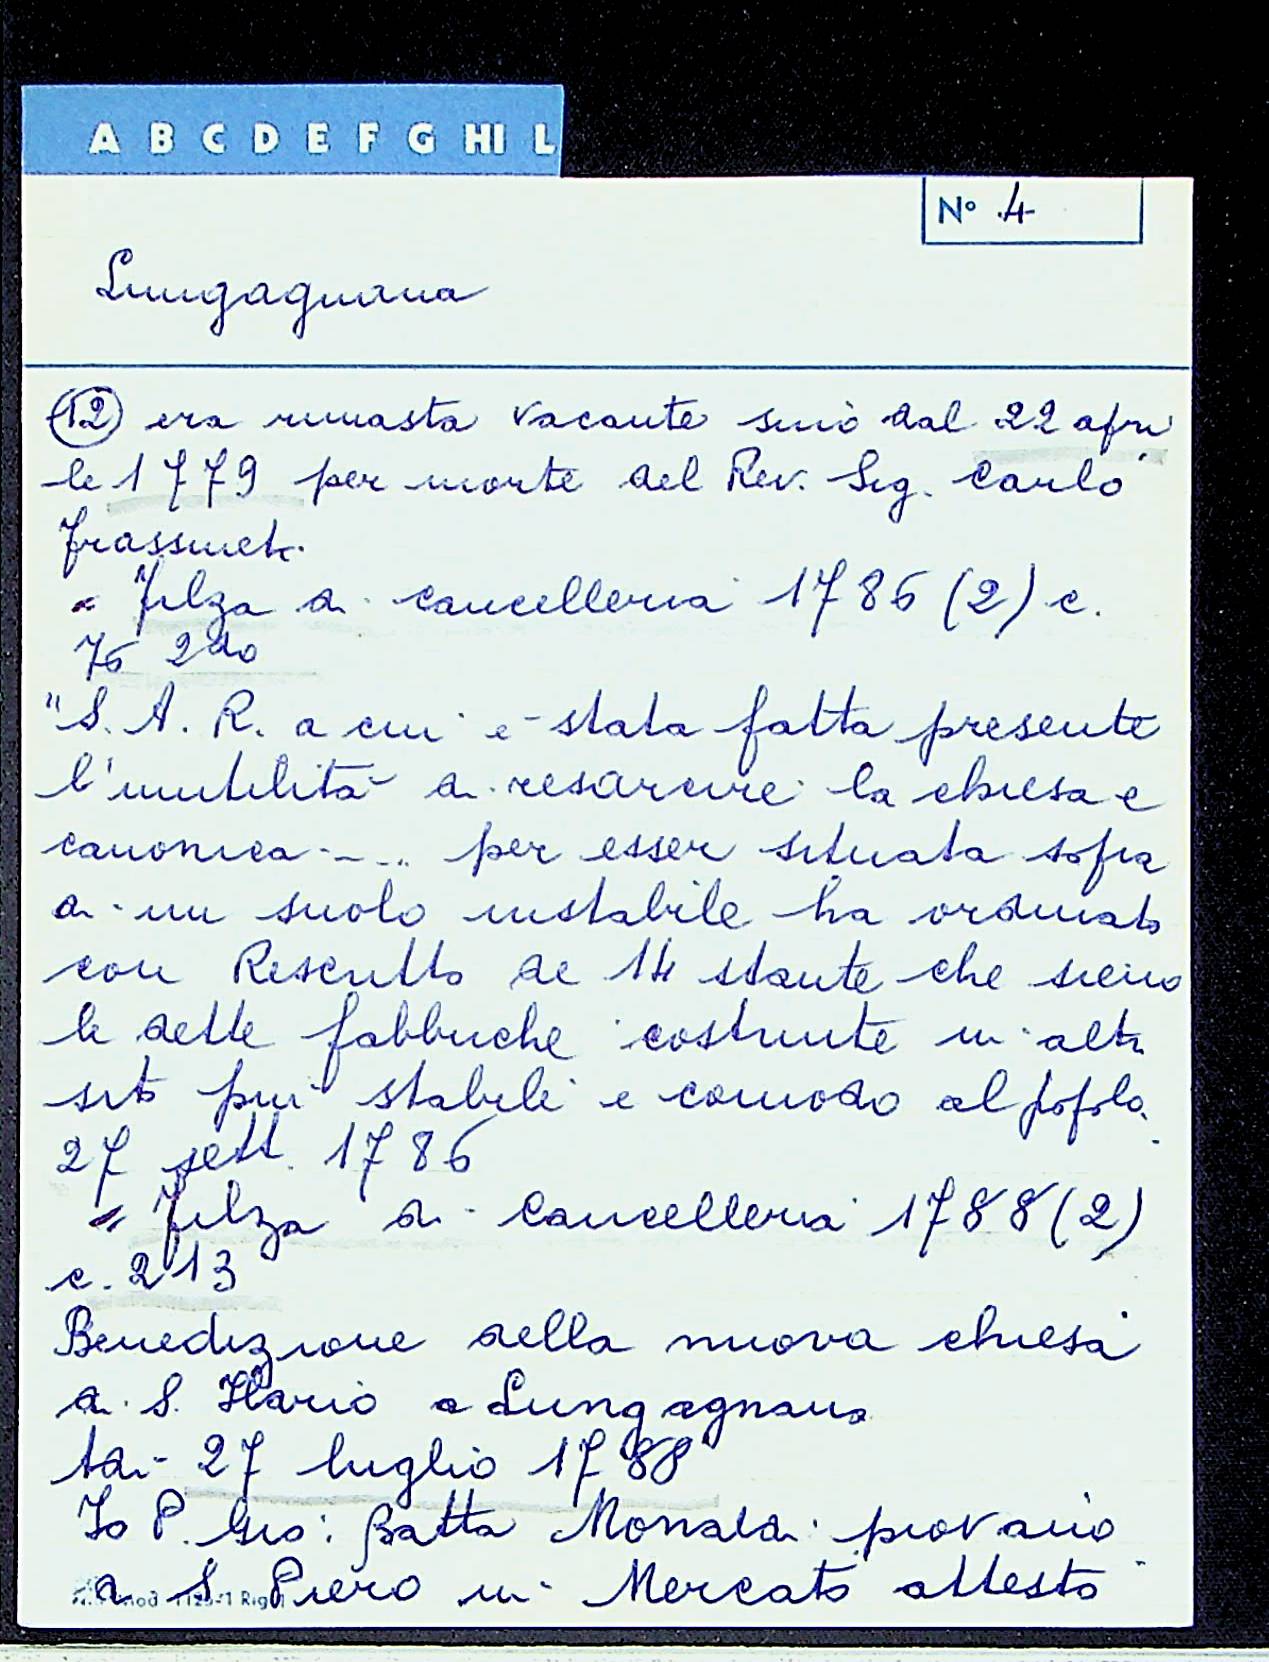 A B C D E F G HI L
N° 4
Lungagnana
(12) era rimasta vacante sino dal 22 apri
le 1779 per morte del Rev. Sig. Carlo
Frassineti
" Filza di cancelleria 1786 (2) c.
76 2do
"S. A. R. a cui è stata fatta presente
l'inutilità di resarcire la chiesa e
canonica - - .. per esser situata sopra
di un suolo instabile ha ordinato
con Rescritto de 14 stante che sieno
le dette fabbriche costruite in altro
sito più stabile e comodo al popolo.
27 sett. 1786
" Filza di Cancelleria 1788 (2)
c. 213
Benedizione della nuova chiesa
di S. Ilario a Lungagnana
27 luglio 1788
Io P. Gio: Batta Monaldi piovano
di S. Piero in Mercato attesto